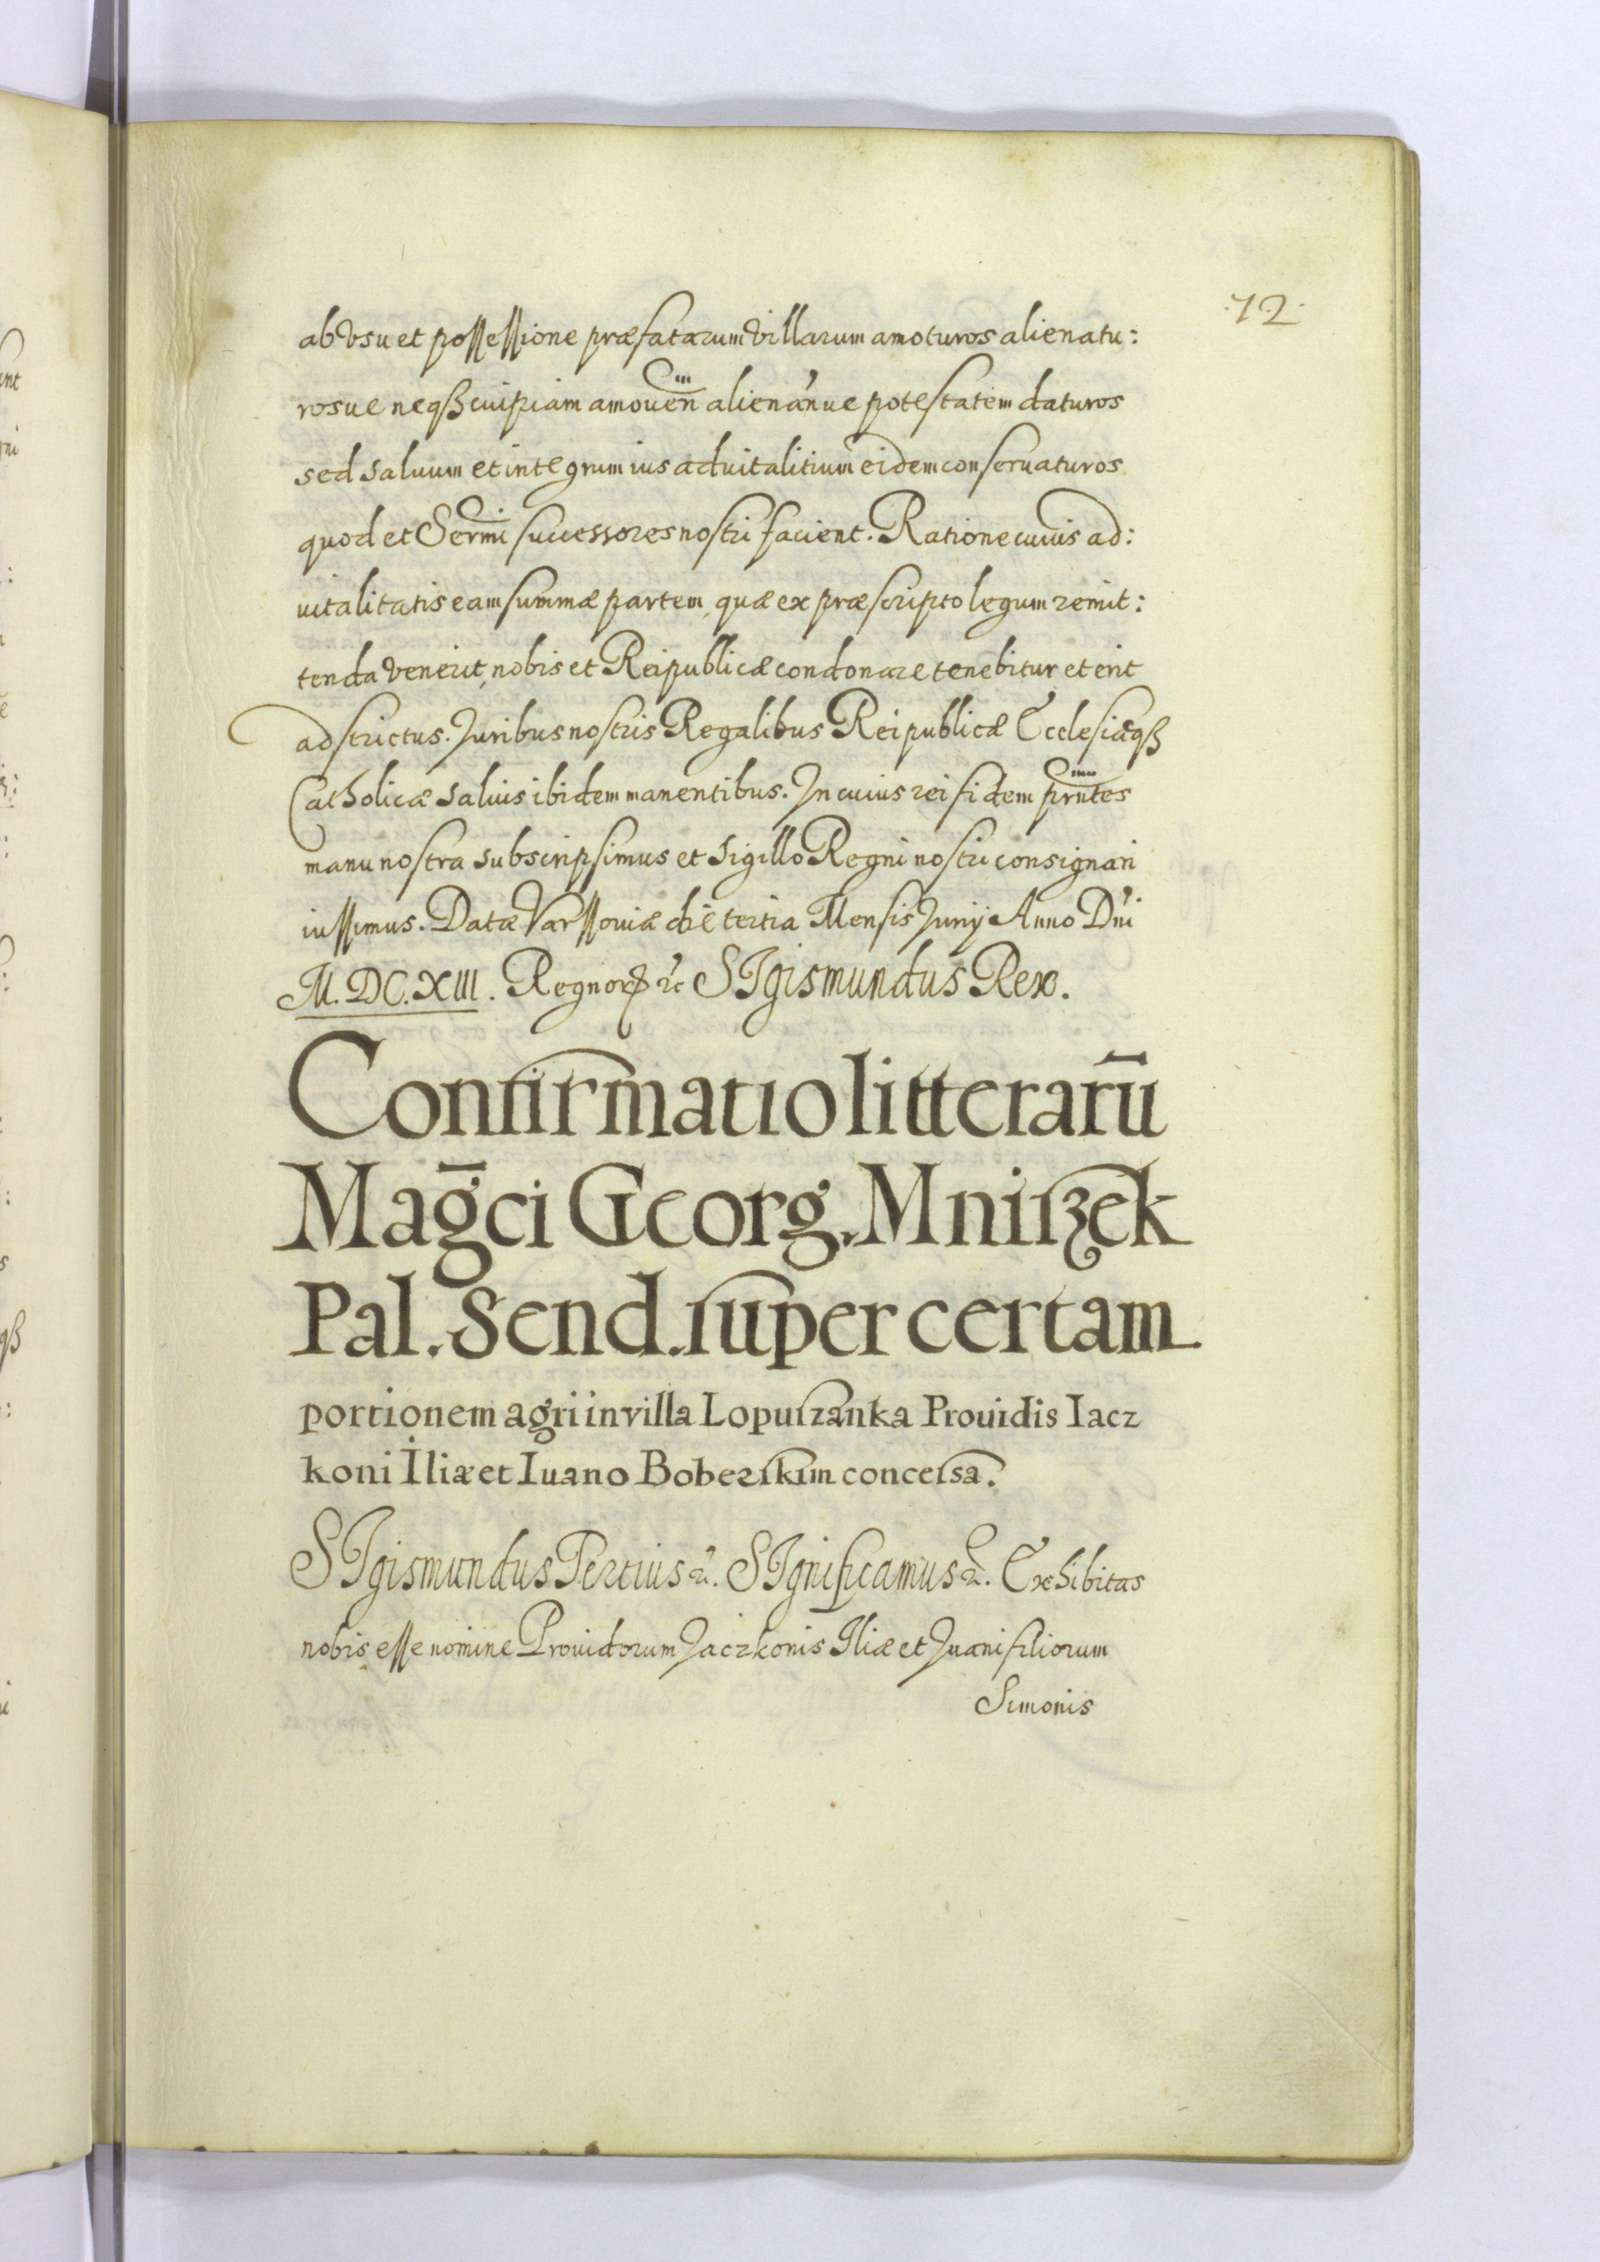 72.
ab vsu et possessione præfatarum villarum amoturos alienatu:
rosue neqß cuipiam amouen̄ alienan̓ue potestatem daturos
sed saluum et integrum ius aduitalitium eidem conseruaturos
quod et Sermi̅ successores nostri facient. Ratione cuius ad:
uitalitatis eam summæ partem, quæ ex præscripto legum remit:
tenda venerit, nobis et Reipublicæ condonare tenebitur et erit
adstrictus. Juribus nostris Regalibus Reipublicæ Ecclesiæqß
Catholicæ saluis ibidem manentibus. In cuius rei fidem prn̄tes
manu nostra subscripsimus et sigillo Regni nostri consignari
iussimus. Datæ Varssouiæ die tertia Mensis Junij Anno Dn̓i
M. DC. XIII. Regnorꝝ ꝛc SIgismundus Rex.
Confirmatio litterarū
Mag̅ci Georg. Mniszek
Pal. Send. super certam
portionem agri in villa Lopuszanka Prouidis Iacz
koni Iliæ et Iuano Boberskim concessa.
SIgismundus Tertius ꝛc. SIgnificamus ꝛc. Exhibitas
nobis esse nomine Prouidorum Jaczkonis Iliæ et Juani filiorum
Simonis